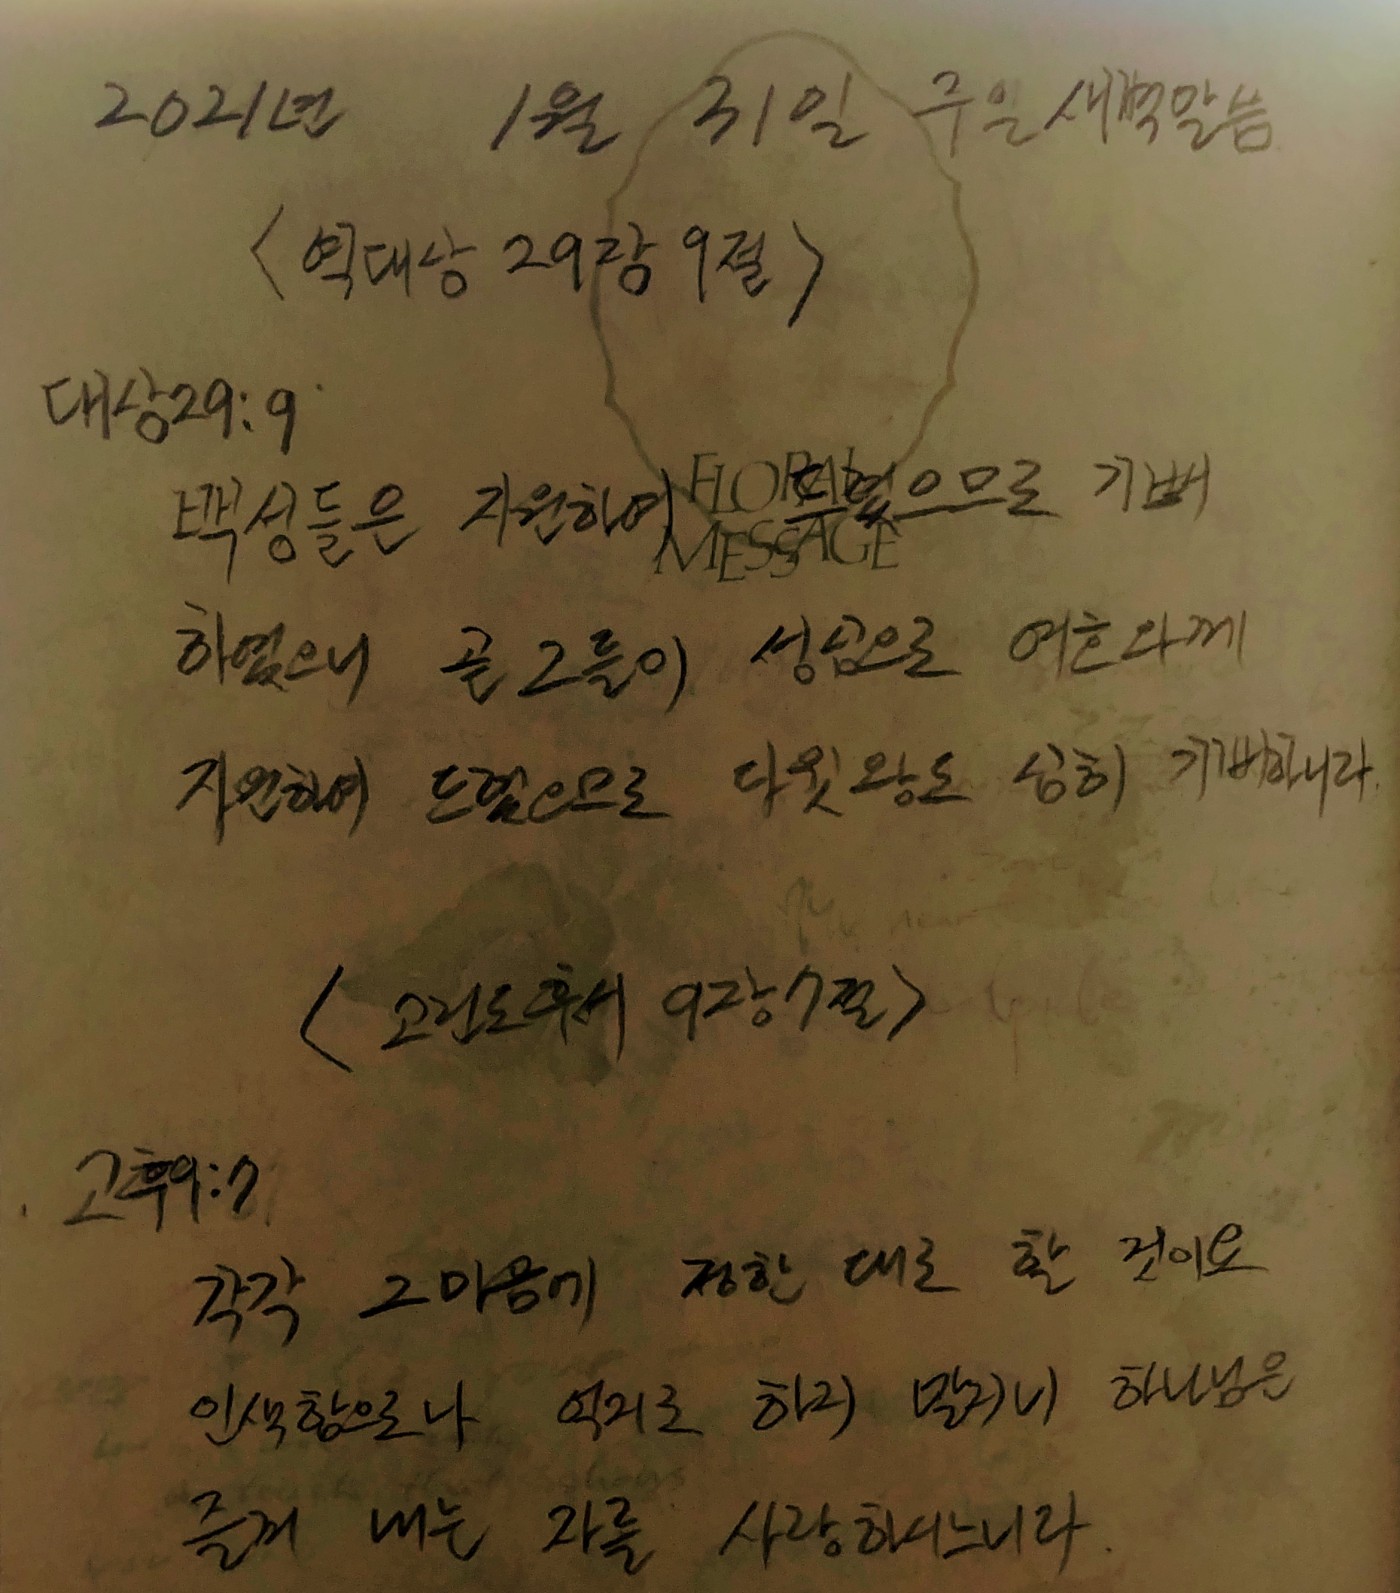 2021년 1월 31일 주일새벽말씀
<역대상 29장 9절>
대상29:9
백성들은 자원하여 드렸으므로 기뻐
FLORAL
MESSAGE
하였으니 곧 그들이 성심으로 여호와께
자원하여 드렸으므로 다윗왕도 심히 기뻐하니라.
<고린도후서 9장7절>
고후9:7
각각 그마음에 정한 대로 할 것이요
인색함으로나 억지로 하지 말지니 하나님은
즐겨 내는 자를 사랑하시느니라.